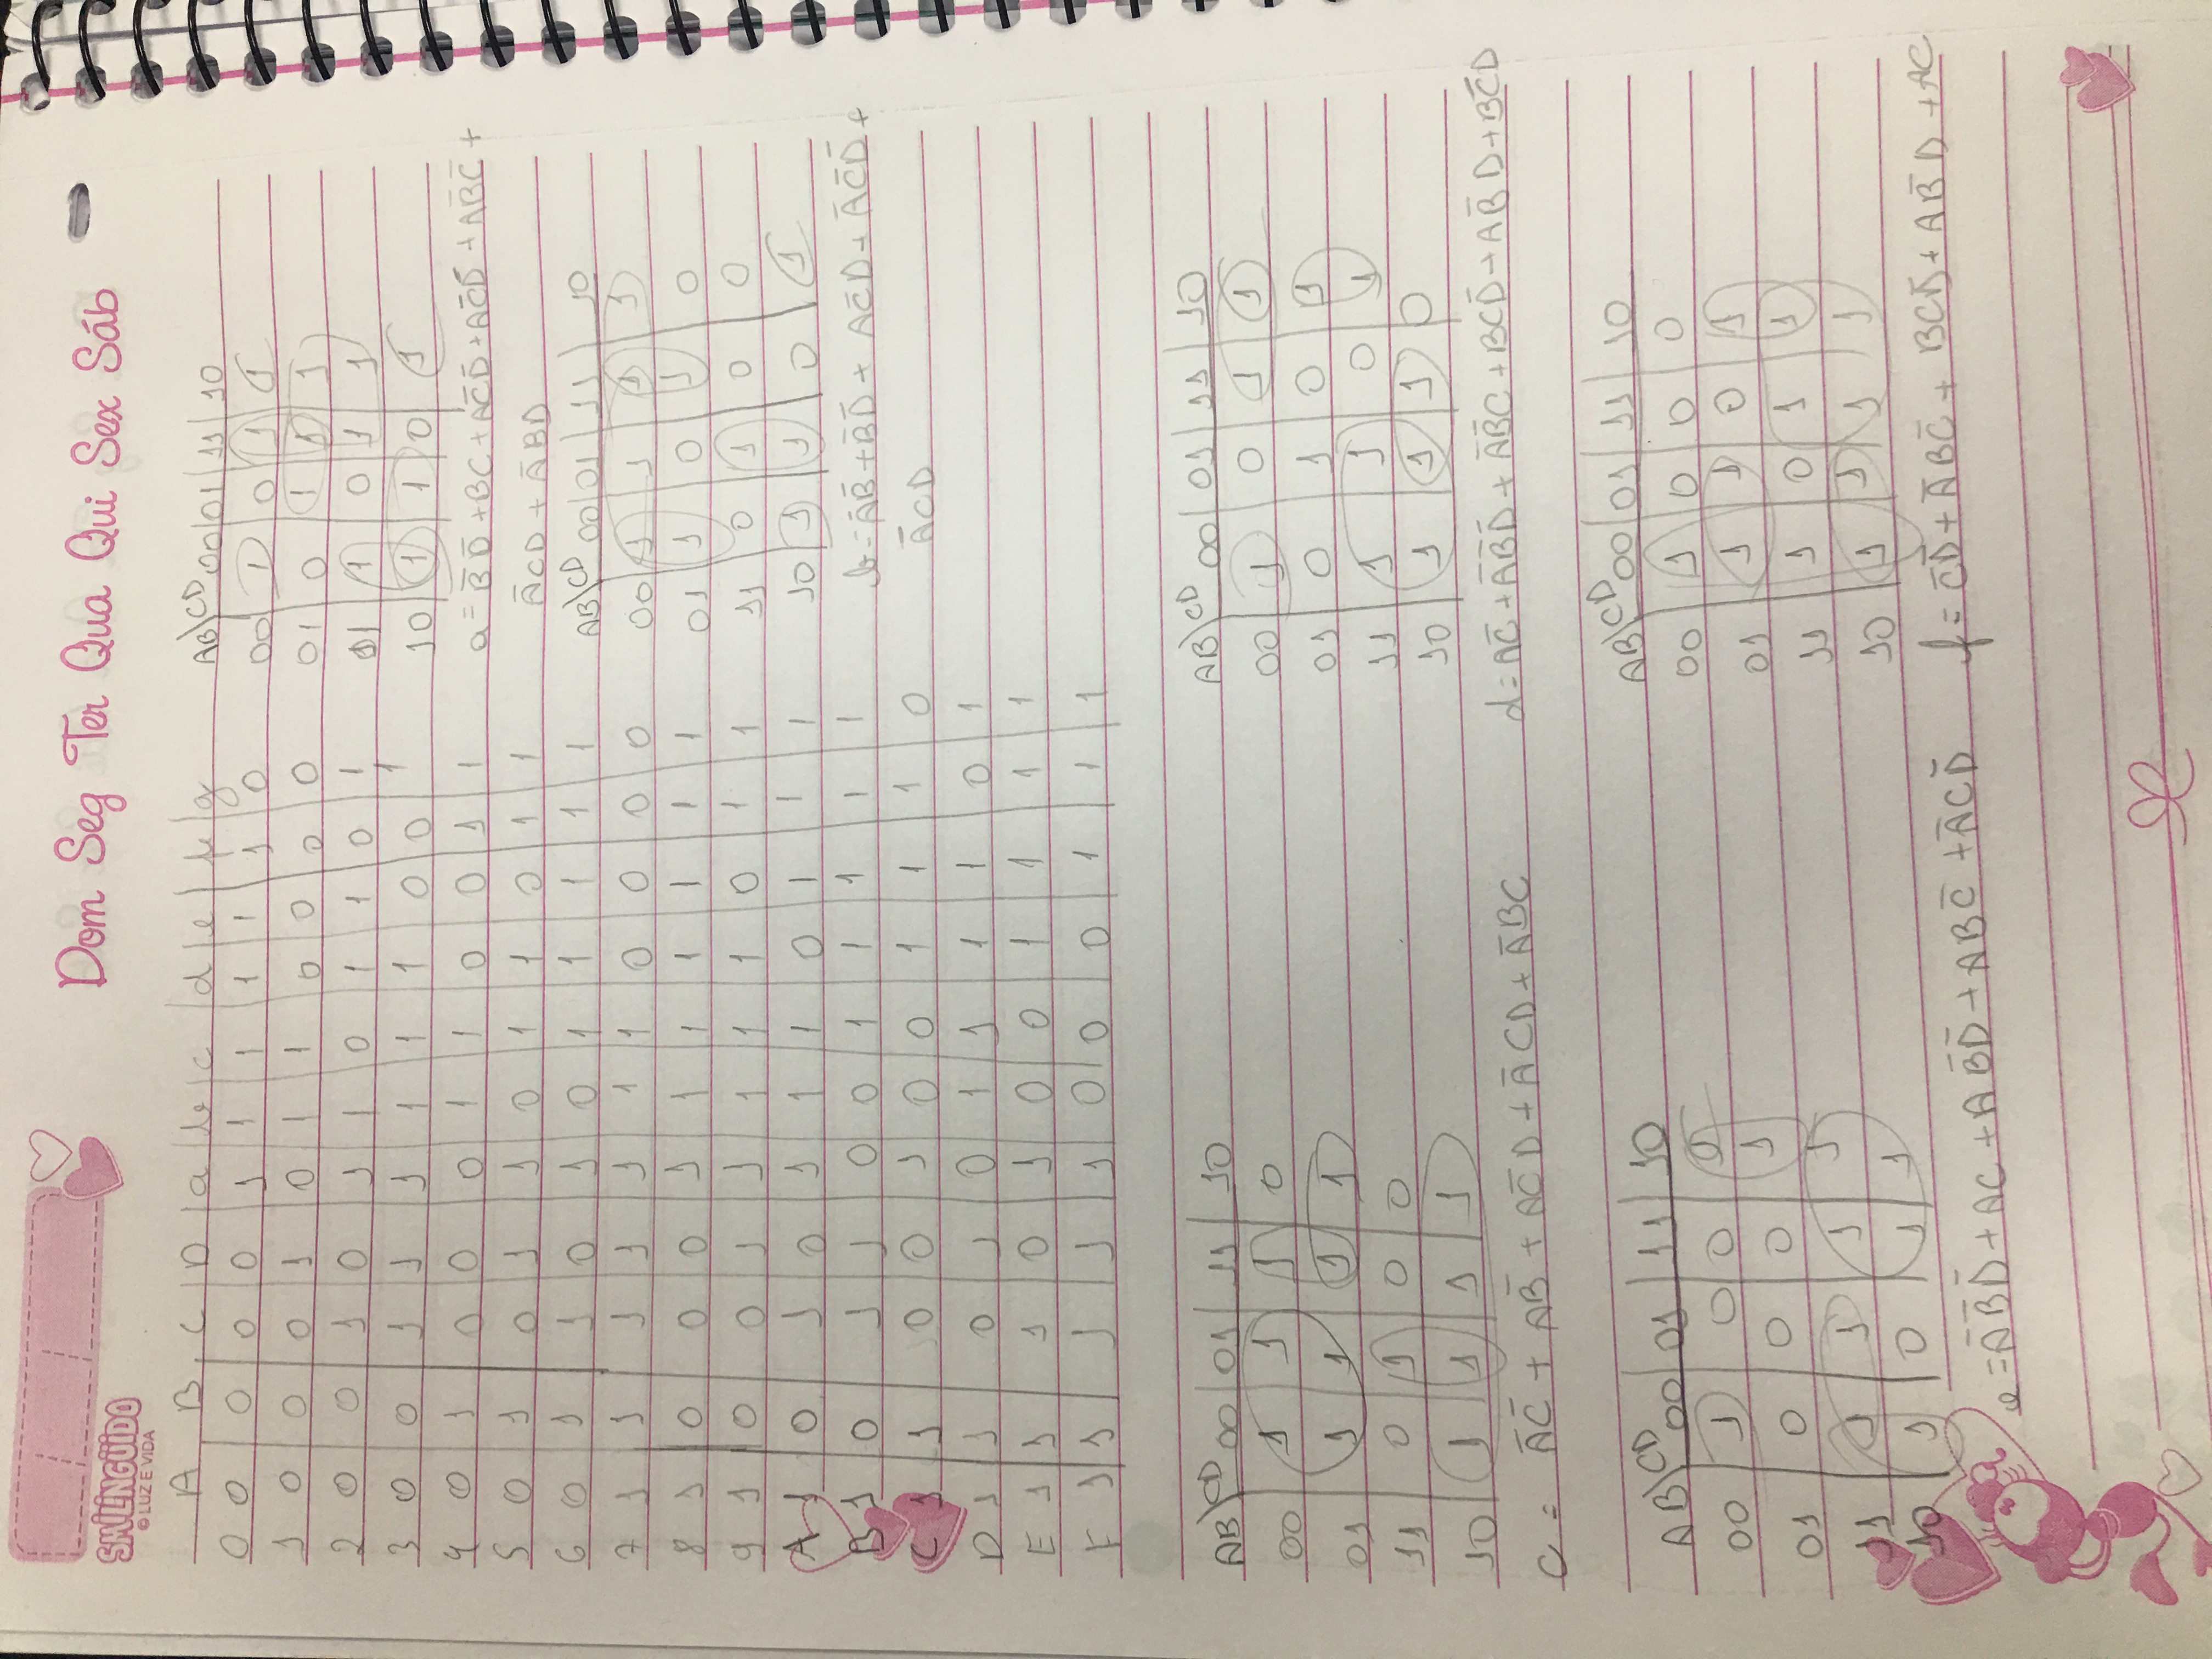 SMILINGÜIDO
© LUZ E VIDA
Dom Seg Ter Qua Qui Sex Sáb
A B C D a b c d e f g
0 0 0 0 0 1 1 1 1 1 1 0
1 0 0 0 1 0 1 1 0 0 0 0
2 0 0 1 0 1 1 0 1 1 0 1
3 0 0 1 1 1 1 1 1 0 0 1
4 0 1 0 0 0 1 1 0 0 1 1
5 0 1 0 1 1 0 1 1 0 1 1
6 0 1 1 0 1 0 1 1 1 1 1
7 1 1 1 1 1 1 1 0 0 0 0
8 1 0 0 0 1 1 1 1 1 1 1
9 1 0 0 1 1 1 1 1 0 1 1
A 1 0 1 0 1 1 1 0 1 1 1
B 1 0 1 1 0 0 1 1 1 1 1
C 1 1 0 0 1 0 0 1 1 1 0
D 1 1 0 1 0 1 1 1 1 0 1
E 1 1 1 0 1 0 0 1 1 1 1
F 1 1 1 1 1 0 0 0 1 1 1
AB\CD 00 01 11 10
00 1 0 1 1
01 0 1 1 1
11 1 0 1 1
10 1 1 0 1
a = B̄D̄ + BC + AC̄D̄ + AC̄D̄ + AB̄C̄ +
ĀCD + ĀBD
AB\CD 00 01 11 10
00 1 1 1 1
01 1 0 1 0
11 0 1 0 0
10 1 1 0 1
b = ĀB̄ + B̄D̄ + AC̄D + ĀC̄D̄ +
ĀCD
AB\CD 00 01 11 10
00 1 1 1 0
01 1 1 1 1
11 0 1 0 0
10 1 1 1 1
C = ĀC̄ + AB̄ + AC̄D + ĀCD + ĀBC
AB\CD 00 01 11 10
00 1 0 1 1
01 0 1 0 1
11 1 1 0 1
10 1 1 1 0
d = AC̄ + ĀB̄D̄ + ĀB̄C + BCD̄ + AB̄D + BC̄D
AB\CD 00 01 11 10
00 1 0 0 1
01 0 0 0 1
11 1 1 1 1
10 1 0 1 1
e = ĀB̄D̄ + AC + AB̄D̄ + ABC̄ + ĀCD̄
AB\CD 00 01 11 10
00 1 0 0 0
01 1 1 0 1
11 1 0 1 1
10 1 1 1 1
f = C̄D̄ + ĀBC̄ + BCD̄ + AB̄D + AC